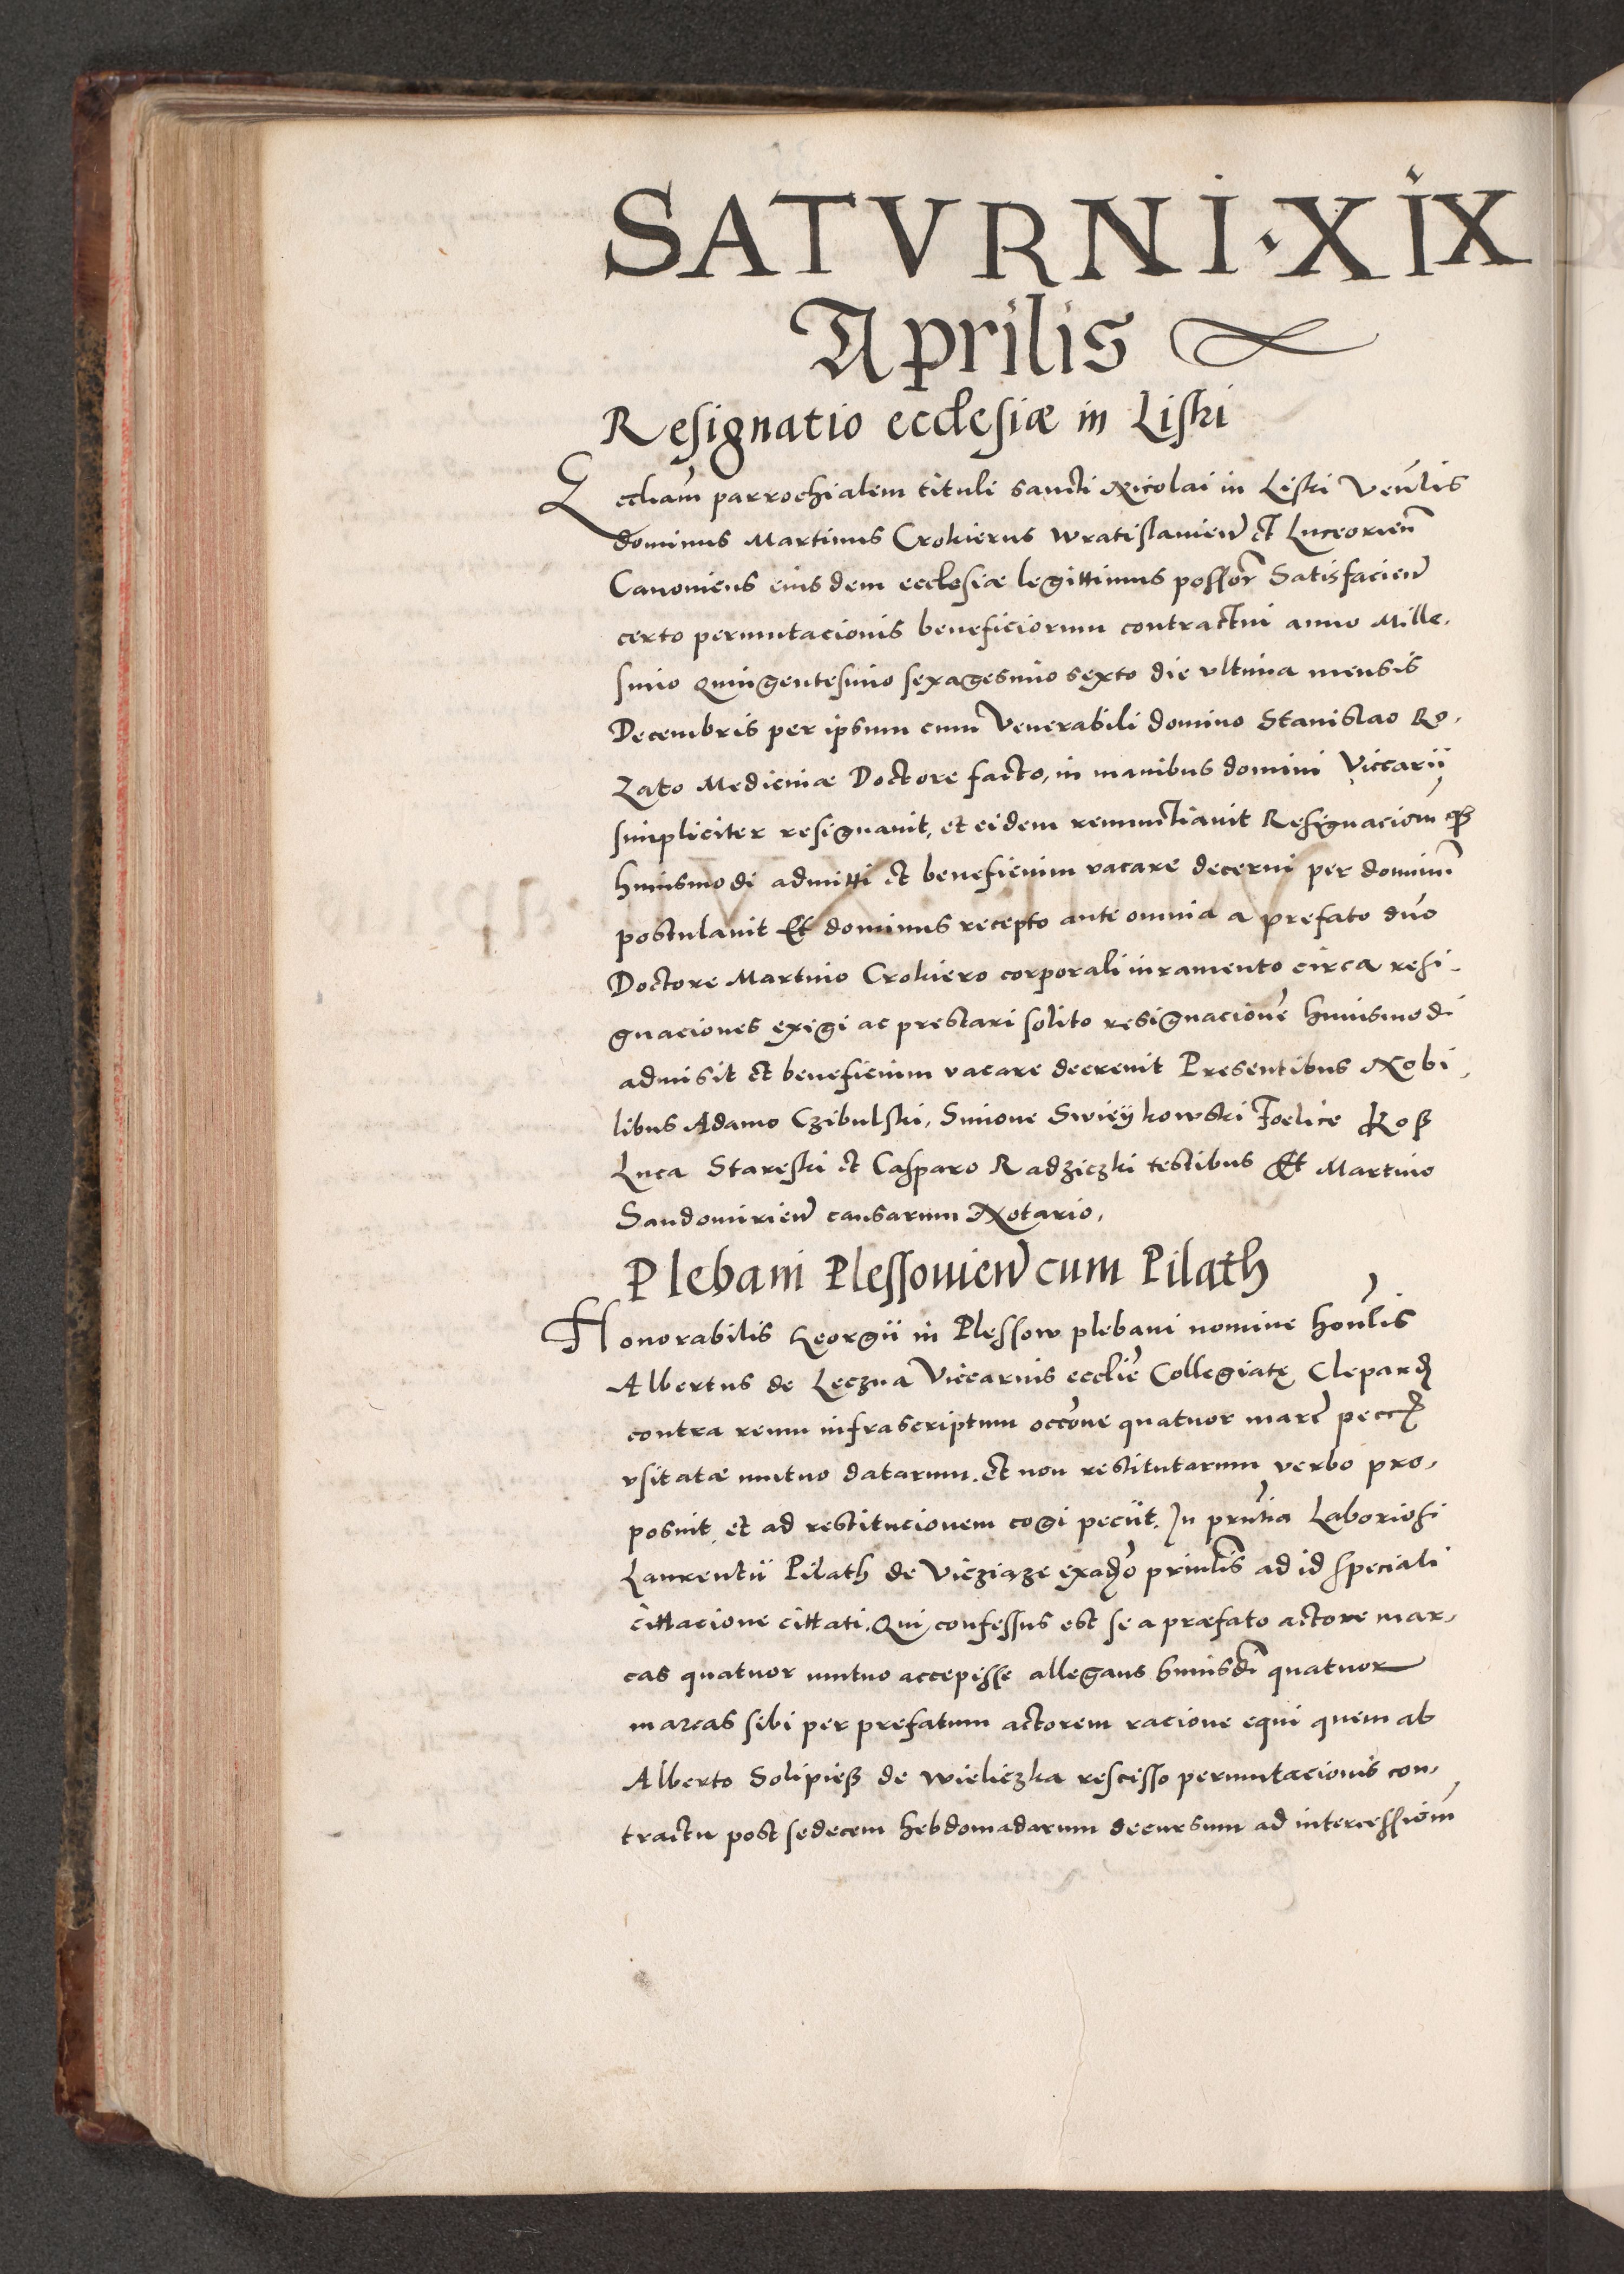 SATVRNI · XIX
Aprilis
Resignatio ecclesiæ in Liski
Eccliam parrochialem tituli sancti Nicolai in Liski Venlis
dominus Martinus Crokierus Wratislavien et Luceorien
Canonicus eiusdem ecclesiæ legittimus possor Satisfacien
certo permutacionis beneficiorum contractui anno Mille,
simo Quingentesimo sexagesimo sexto die vltima mensis
Decembris per ipsum cum Venerabili domino Stanislao Ro,
zato Medicinæ Doctore facto, in manibus domini Viccarii
simpliciter resignavit, et eidem renunctiavit Resignaciom qz
huiusmodi admitti et beneficium vacare decerni per dominum
postulavit Et dominus recepto ante omnia a prefato dno
Doctore Martino Crokiero corporali iuramento circa resi-
gnaciones exigi ac prestari solito resignacione huiusmodi
admisit et beneficium vacare decrevit Presentibus Nobi,
libus Adamo Czibulski, Simone Swieykowski Foelice Koß
Luca Stareski et Casparo Radziczki testibus Et Martino
Sandomirien causarum Notario,
Plebani Plessovien cum Pilath
Honorabilis Georgii in Plessow plebani nomine honlis
Albertus de Leczna Viccarius ecclie Collegiatę Clepard
contra reum infrascriptum occone quatuor marc pecc
vsitatæ mutuo datarum et non restitutarum verbo pro,
posuit et ad restitucionem cogi peciit. In prntia Laboriosi
Laurentii Pilath de Vicziaze exado printis ad id speciali
cittacione cittati, Qui confessus est se a præfato actore mar,
cas quatuor mutuo accepisse allegans huiusdi quatuor
marcas sibi per prefatum actorem racione equi quem ab
Alberto Solipieß de Wieliczka rescisso permutacionis con,
tractu post sedecem hebdomadarum decursum ad intercessiom